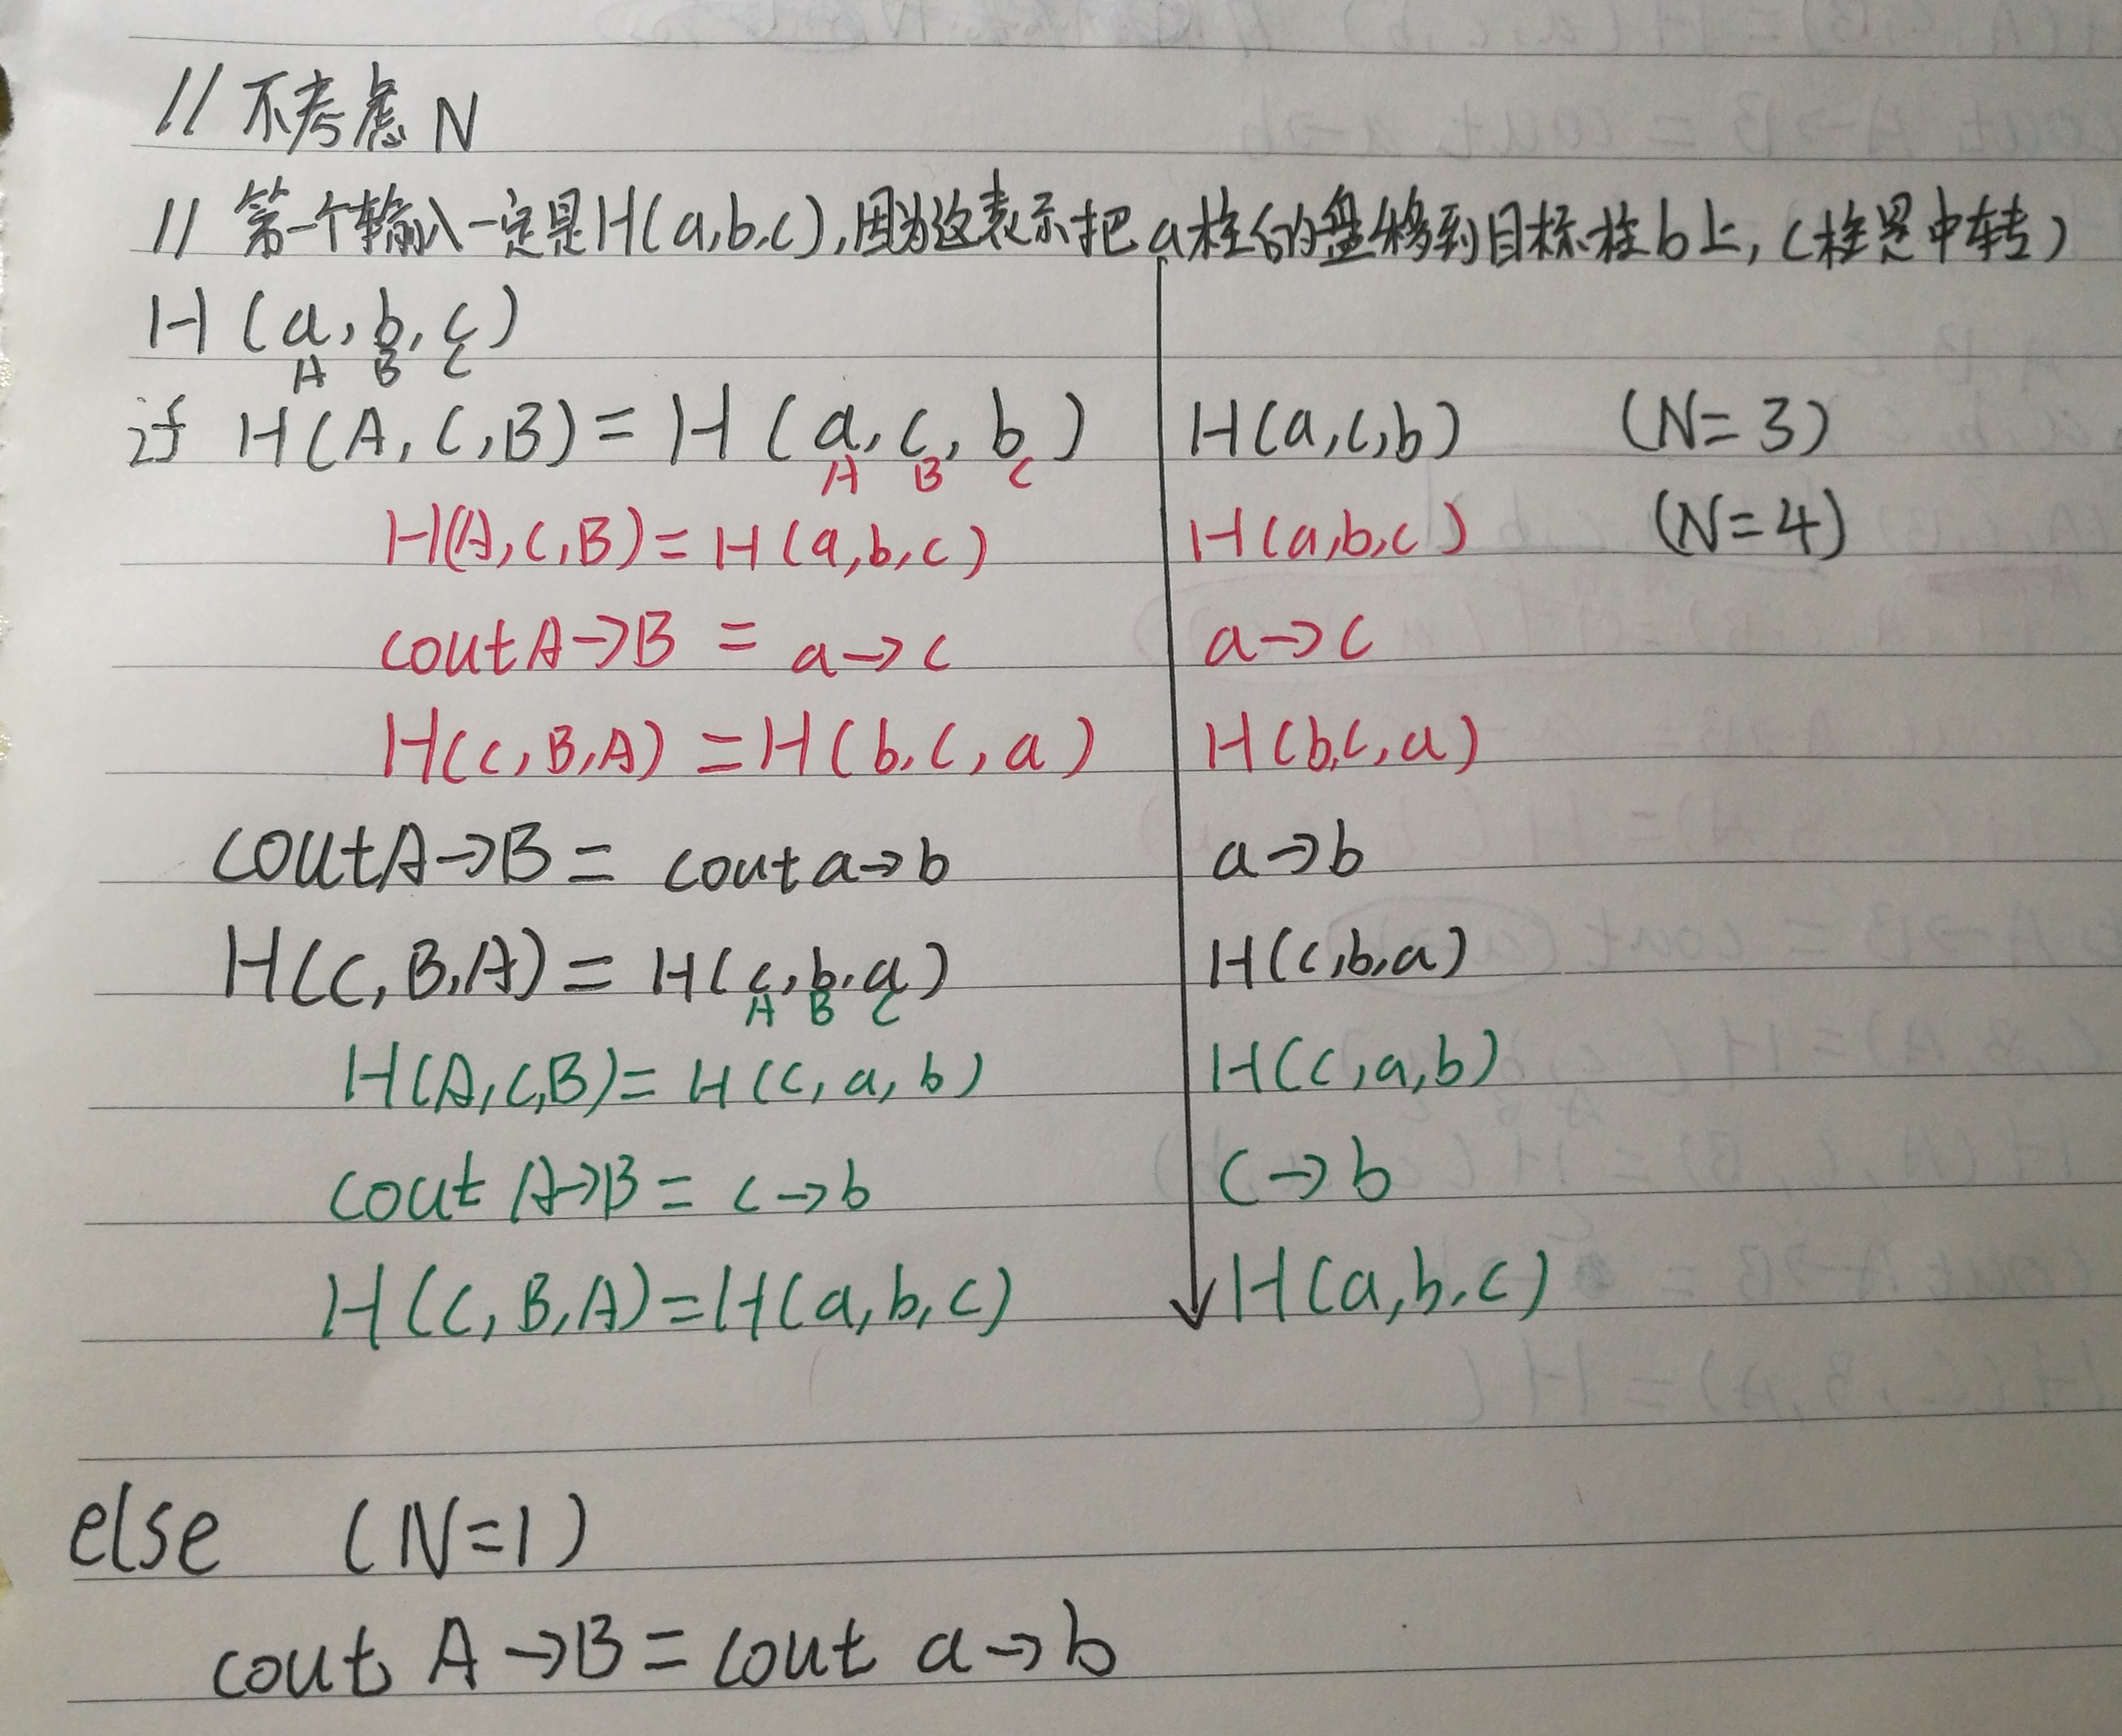 // 不考虑 N
// 第一个输入一定是H(a,b,c),因为这表示把a柱的盘移到目标柱b上,c柱是中转)
H(a,b,c)
A B C
if H(A,C,B)=H(a,c,b) H(a,c,b) (N=3)
A B C
H(A,C,B)=H(a,b,c) H(a,b,c) (N=4)
cout A→B = a→c a→c
H(C,B,A)=H(b,c,a) H(b,c,a)
cout A→B = cout a→b a→b
H(C,B,A)=H(c,b,a) H(c,b,a)
A B C
H(A,C,B)=H(c,a,b) H(c,a,b)
cout A→B = c→b c→b
H(C,B,A)=H(a,b,c) H(a,b,c)
else (N=1)
cout A→B = cout a→b